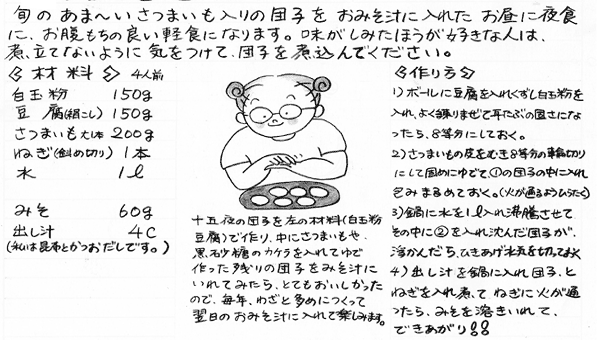 旬のあま〜いさつまいも入りの団子をおみそ汁に入れたお昼に夜食
に、お腹もちの良い軽食になります。味がしみたほうが好きな人は、
煮立てないように気をつけて、団子を煮込んでください。
◇材料◇ 4人前
白玉粉 150g
豆腐(絹こし) 150g
さつまいも大1本 200g
ねぎ(斜め切り) 1本
水 1ℓ
みそ 60g
出し汁 4C
(私は昆布とかつおだしです。)
十五夜の団子を左の材料(白玉粉
豆腐)で作り、中にさつまいもや、
黒砂糖のカケラを入れてゆで
作った残りの団子をみそ汁に
いれてみたら、とてもおいしかった
ので、毎年、わざと多めにつくって
翌日のおみそ汁に入れて楽しみます。
◇作り方◇
1)ボールに豆腐を入れくずし白玉粉を
入れ、よく練りまぜて耳たぶの固さにな
ったら、8等分にしておく。
2)さつまいもの皮をむき8等分の輪切り
にして固めにゆでて、①の団子の中に入れ
包みまるめておく。(火が通るようひらたく)
3)鍋に水を1ℓ入れ沸騰させて
その中に②を入れ沈んだ団子が、
浮かんだら、ひきあげ水気を切っておく
4)出し汁を鍋に入れ団子と
ねぎを入れ煮て ねぎに火が通
ったら、みそを溶きいれて、
できあがり!!